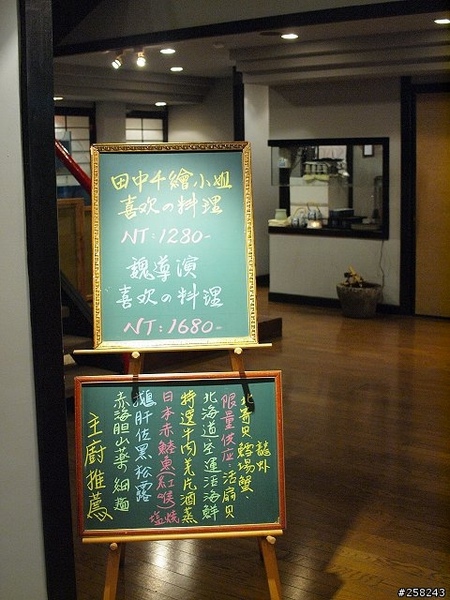 田中千繪小姐
喜欢の料理
NT:1280-
魏導演
喜欢の料理
NT:1680-
龍蝦
北寄貝 鱈場蟹.
限量供应:活扇貝
北海道空運活海鮮
特選牛肉羌片酒蒸
日本赤鯥魚(紅喉)塩燒
鵝肝佐黑松露
赤海胆山薬細麵
主廚推薦
#258243